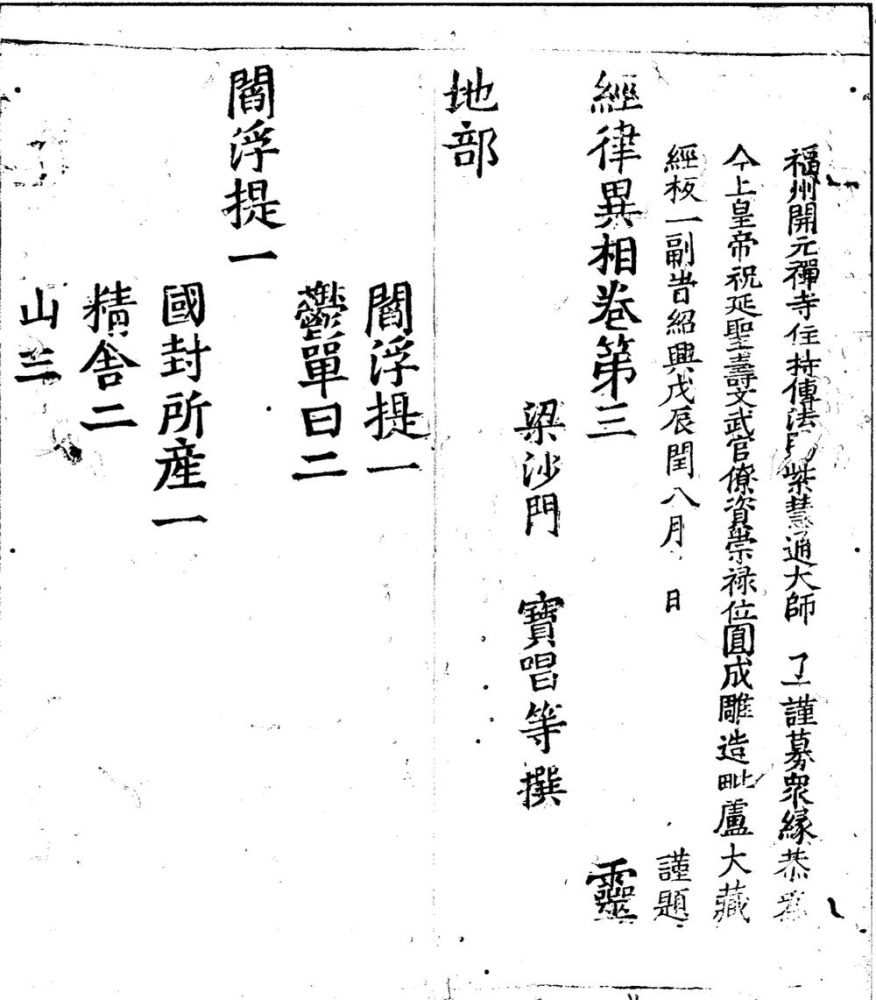 福州開元禪寺住持傳法賜紫慧通大師 了一謹募衆緣恭為
今上皇帝祝延聖壽文武官僚資崇祿位圓成雕造毗盧大藏
經板一副旹紹興戊辰閏八月 日 謹題
經律異相卷第三 靈
梁沙門 寶唱等撰
地部
閻浮提一
鬱單曰二
閻浮提一
國封所產一
精舍二
山三